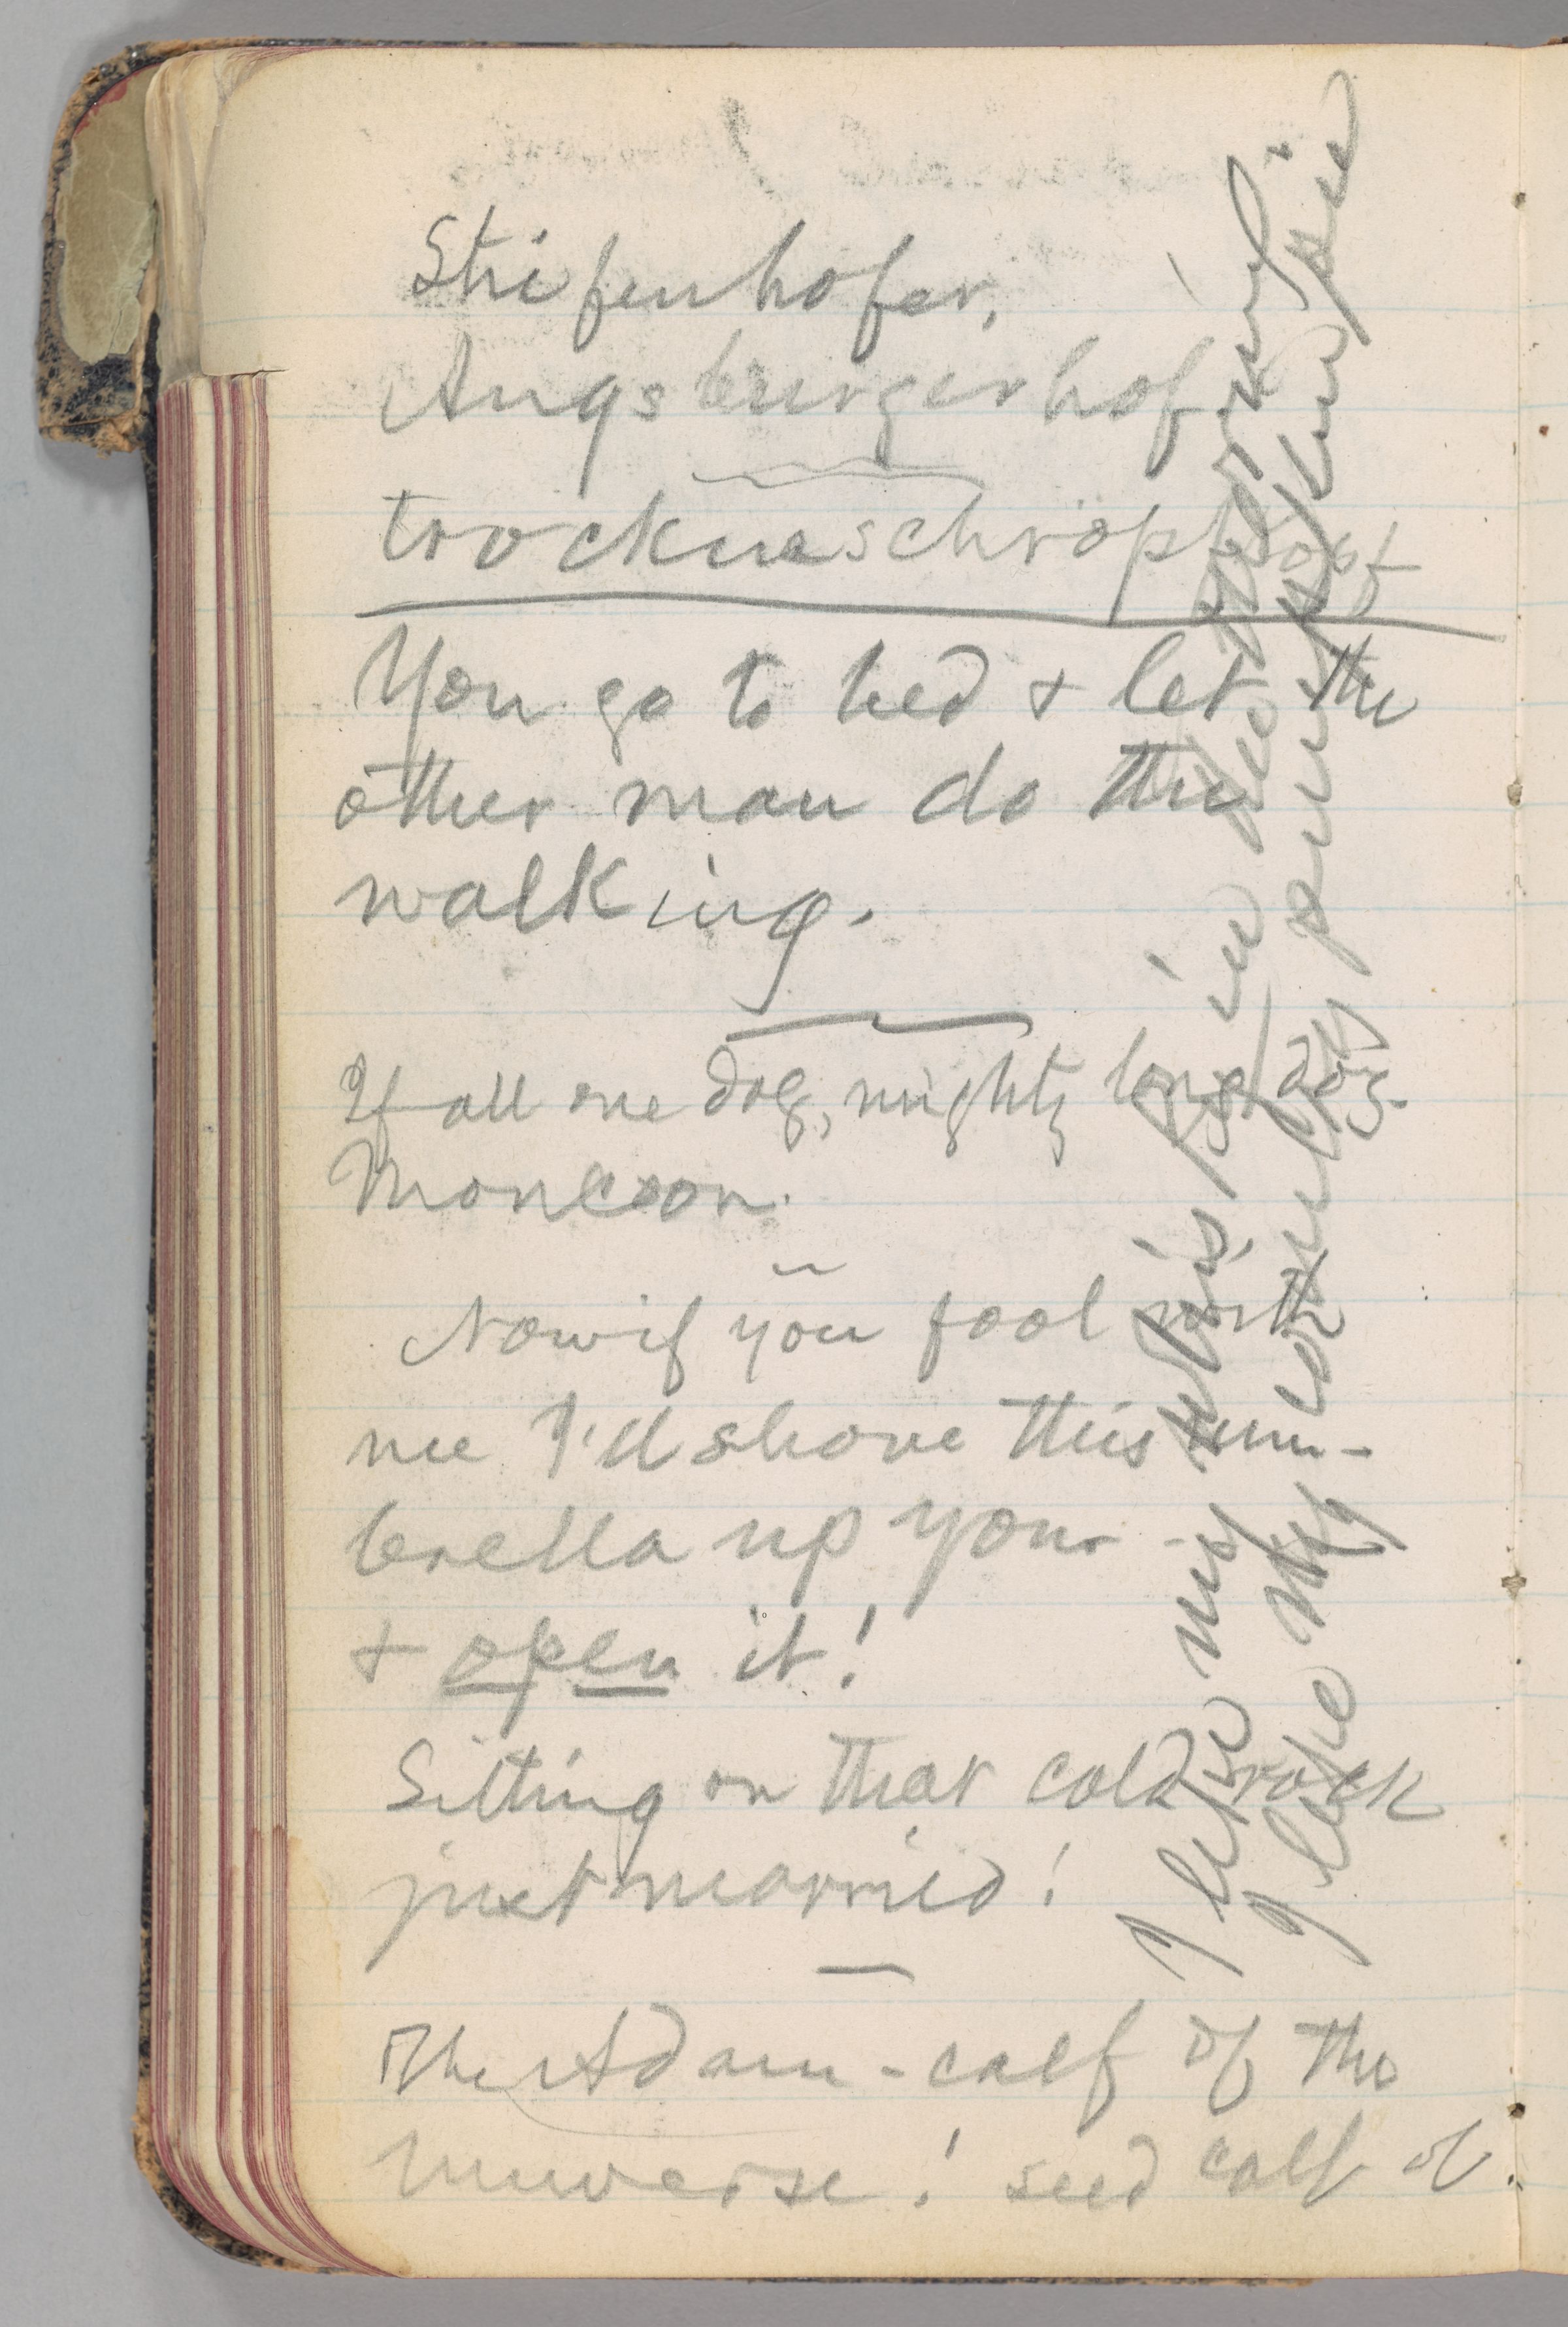 Augsburgerhof
trockneschröpfkopf
You go to bed & let the
other man do the
walking.
If all one dog, mighty long dog.
Now if you fool with
me I'll shove this um-
brella up your -
& open it!
Sitting on that cold rock
just married!
The Adam-calf of the
universe! seed calf of
I my in
I my